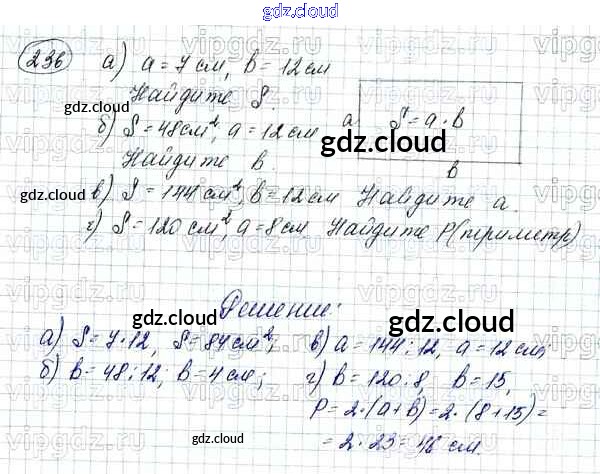 gdz.cloud
236 а) a = 7 см, b = 12 см
Найдите S.
б) S = 48 см², a = 12 см
Найдите b.
a S = a · b
b
в) S = 144 см², b = 12 см Найдите a.
г) S = 120 см², a = 8 см Найдите P (приметр)
Решение:
а) S = 7 · 12, S = 84 см²; в) a = 144 : 12, a = 12 см;
б) b = 48 : 12, b = 4 см; г) b = 120 : 8, b = 15,
P = 2 · (a + b) = 2 · (8 + 15) =
= 2 · 23 = 46 см.
gdz.cloud
gdz.cloud
gdz.cloud
gdz.cloud
gdz.cloud
gdz.cloud
gdz.cloud
gdz.cloud
vipgdz.ru